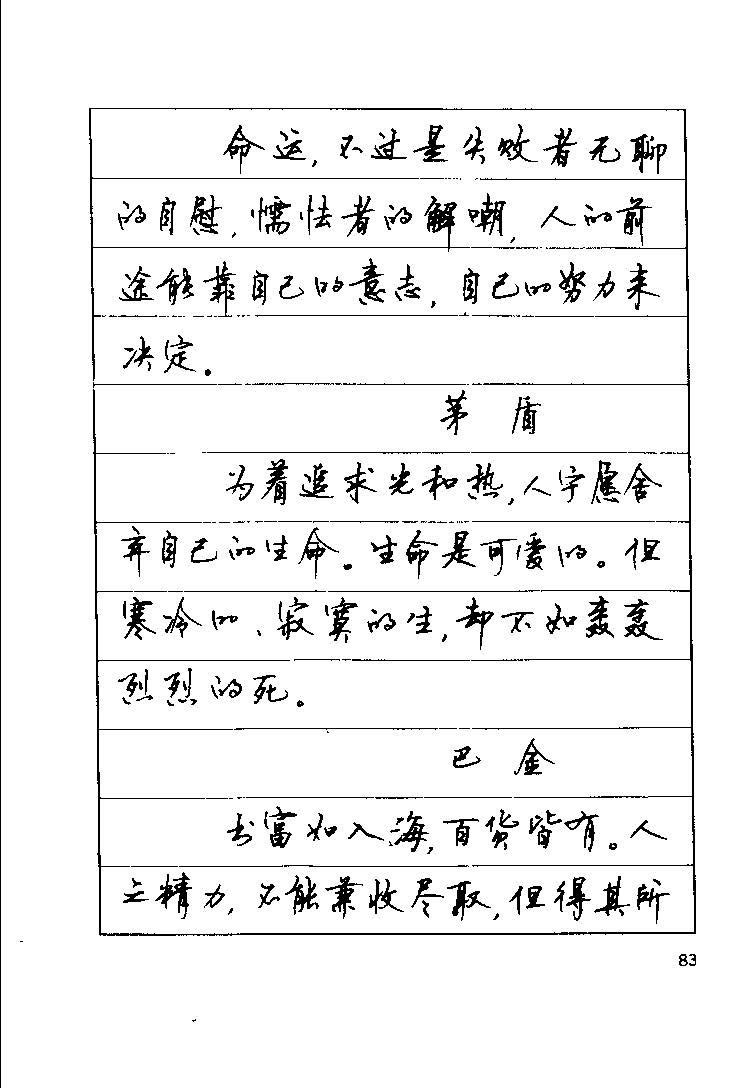 命运,不过是失败者无聊
的自慰,懦怯者的解嘲,人的前
途能靠自己的意志,自己的努力来
决定。
茅 盾
为着追求光和热,人宁愿舍
弃自己的生命。生命是可爱的。但
寒冷的、寂寞的生,却不如轰轰
烈烈的死。
巴 金
书富如入海,百货皆有。人
之精力,不能兼收尽取,但得其所
83